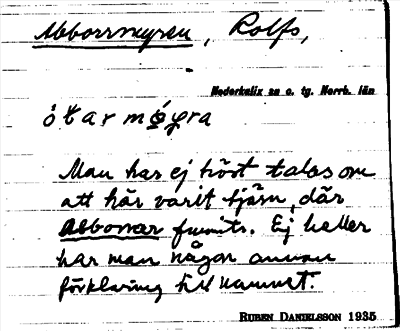 Abborrmyren, Rolfs,
Nederkalix sn o. tg. Norrb. län
Man har ej hört talas om
att här varit tjärn, där
abborrar funnits. Ej heller
har man någon annan
förklaring till namnet.
RUBEN DANIELSSON 1935